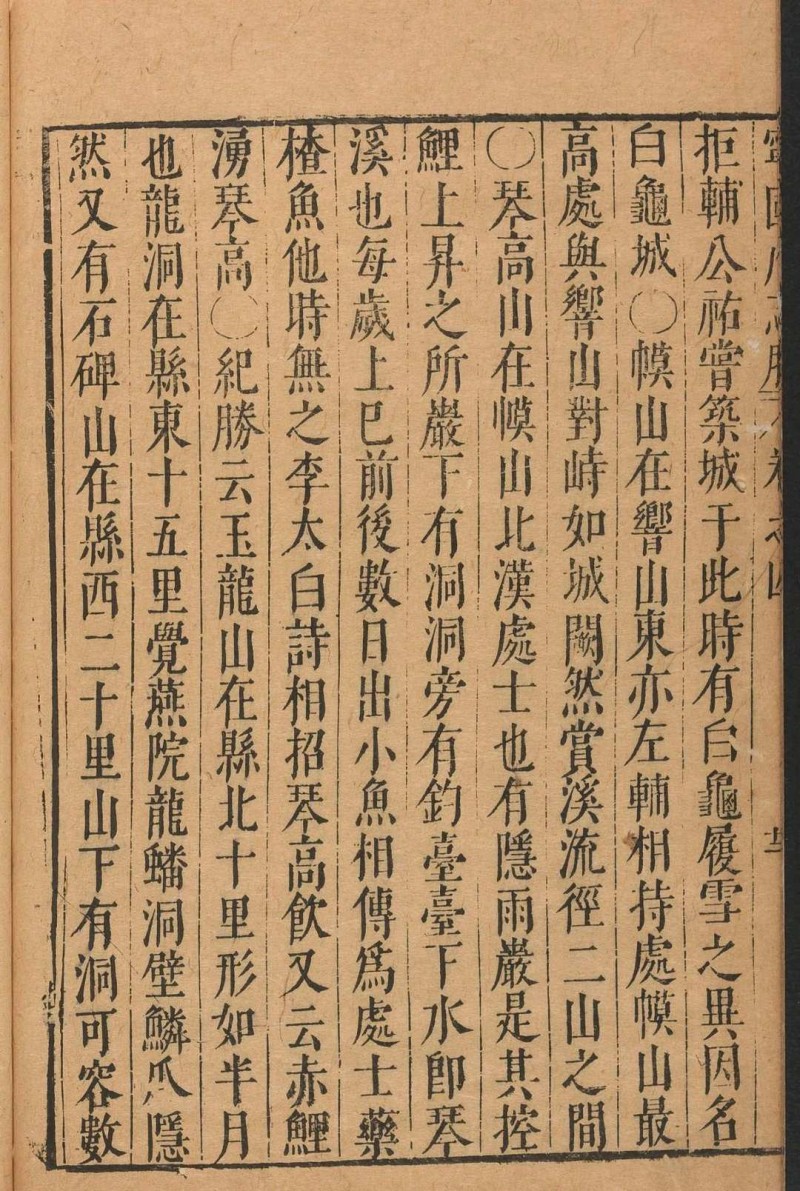 拒輔公祐嘗築城于此時有白龜履雪之異因名
白龜城○幙山在響山東亦左輔相持處幙山最
高處與響山對峙如城闕然賞溪流徑二山之間
○琴高山在幙山北漢處士也有隱雨巖是其控
鯉上昇之所巖下有洞洞旁有釣臺臺下水卽琴
溪也每歲上巳前後數日出小魚相傳爲處士藥
楂魚他時無之李太白詩相招琴高飲又云赤鯉
湧琴高○紀勝云玉龍山在縣北十里形如半月
也龍洞在縣東十五里覺燕院龍蟠洞壁鱗爪隱
然又有石碑山在縣西二十里山下有洞可容數